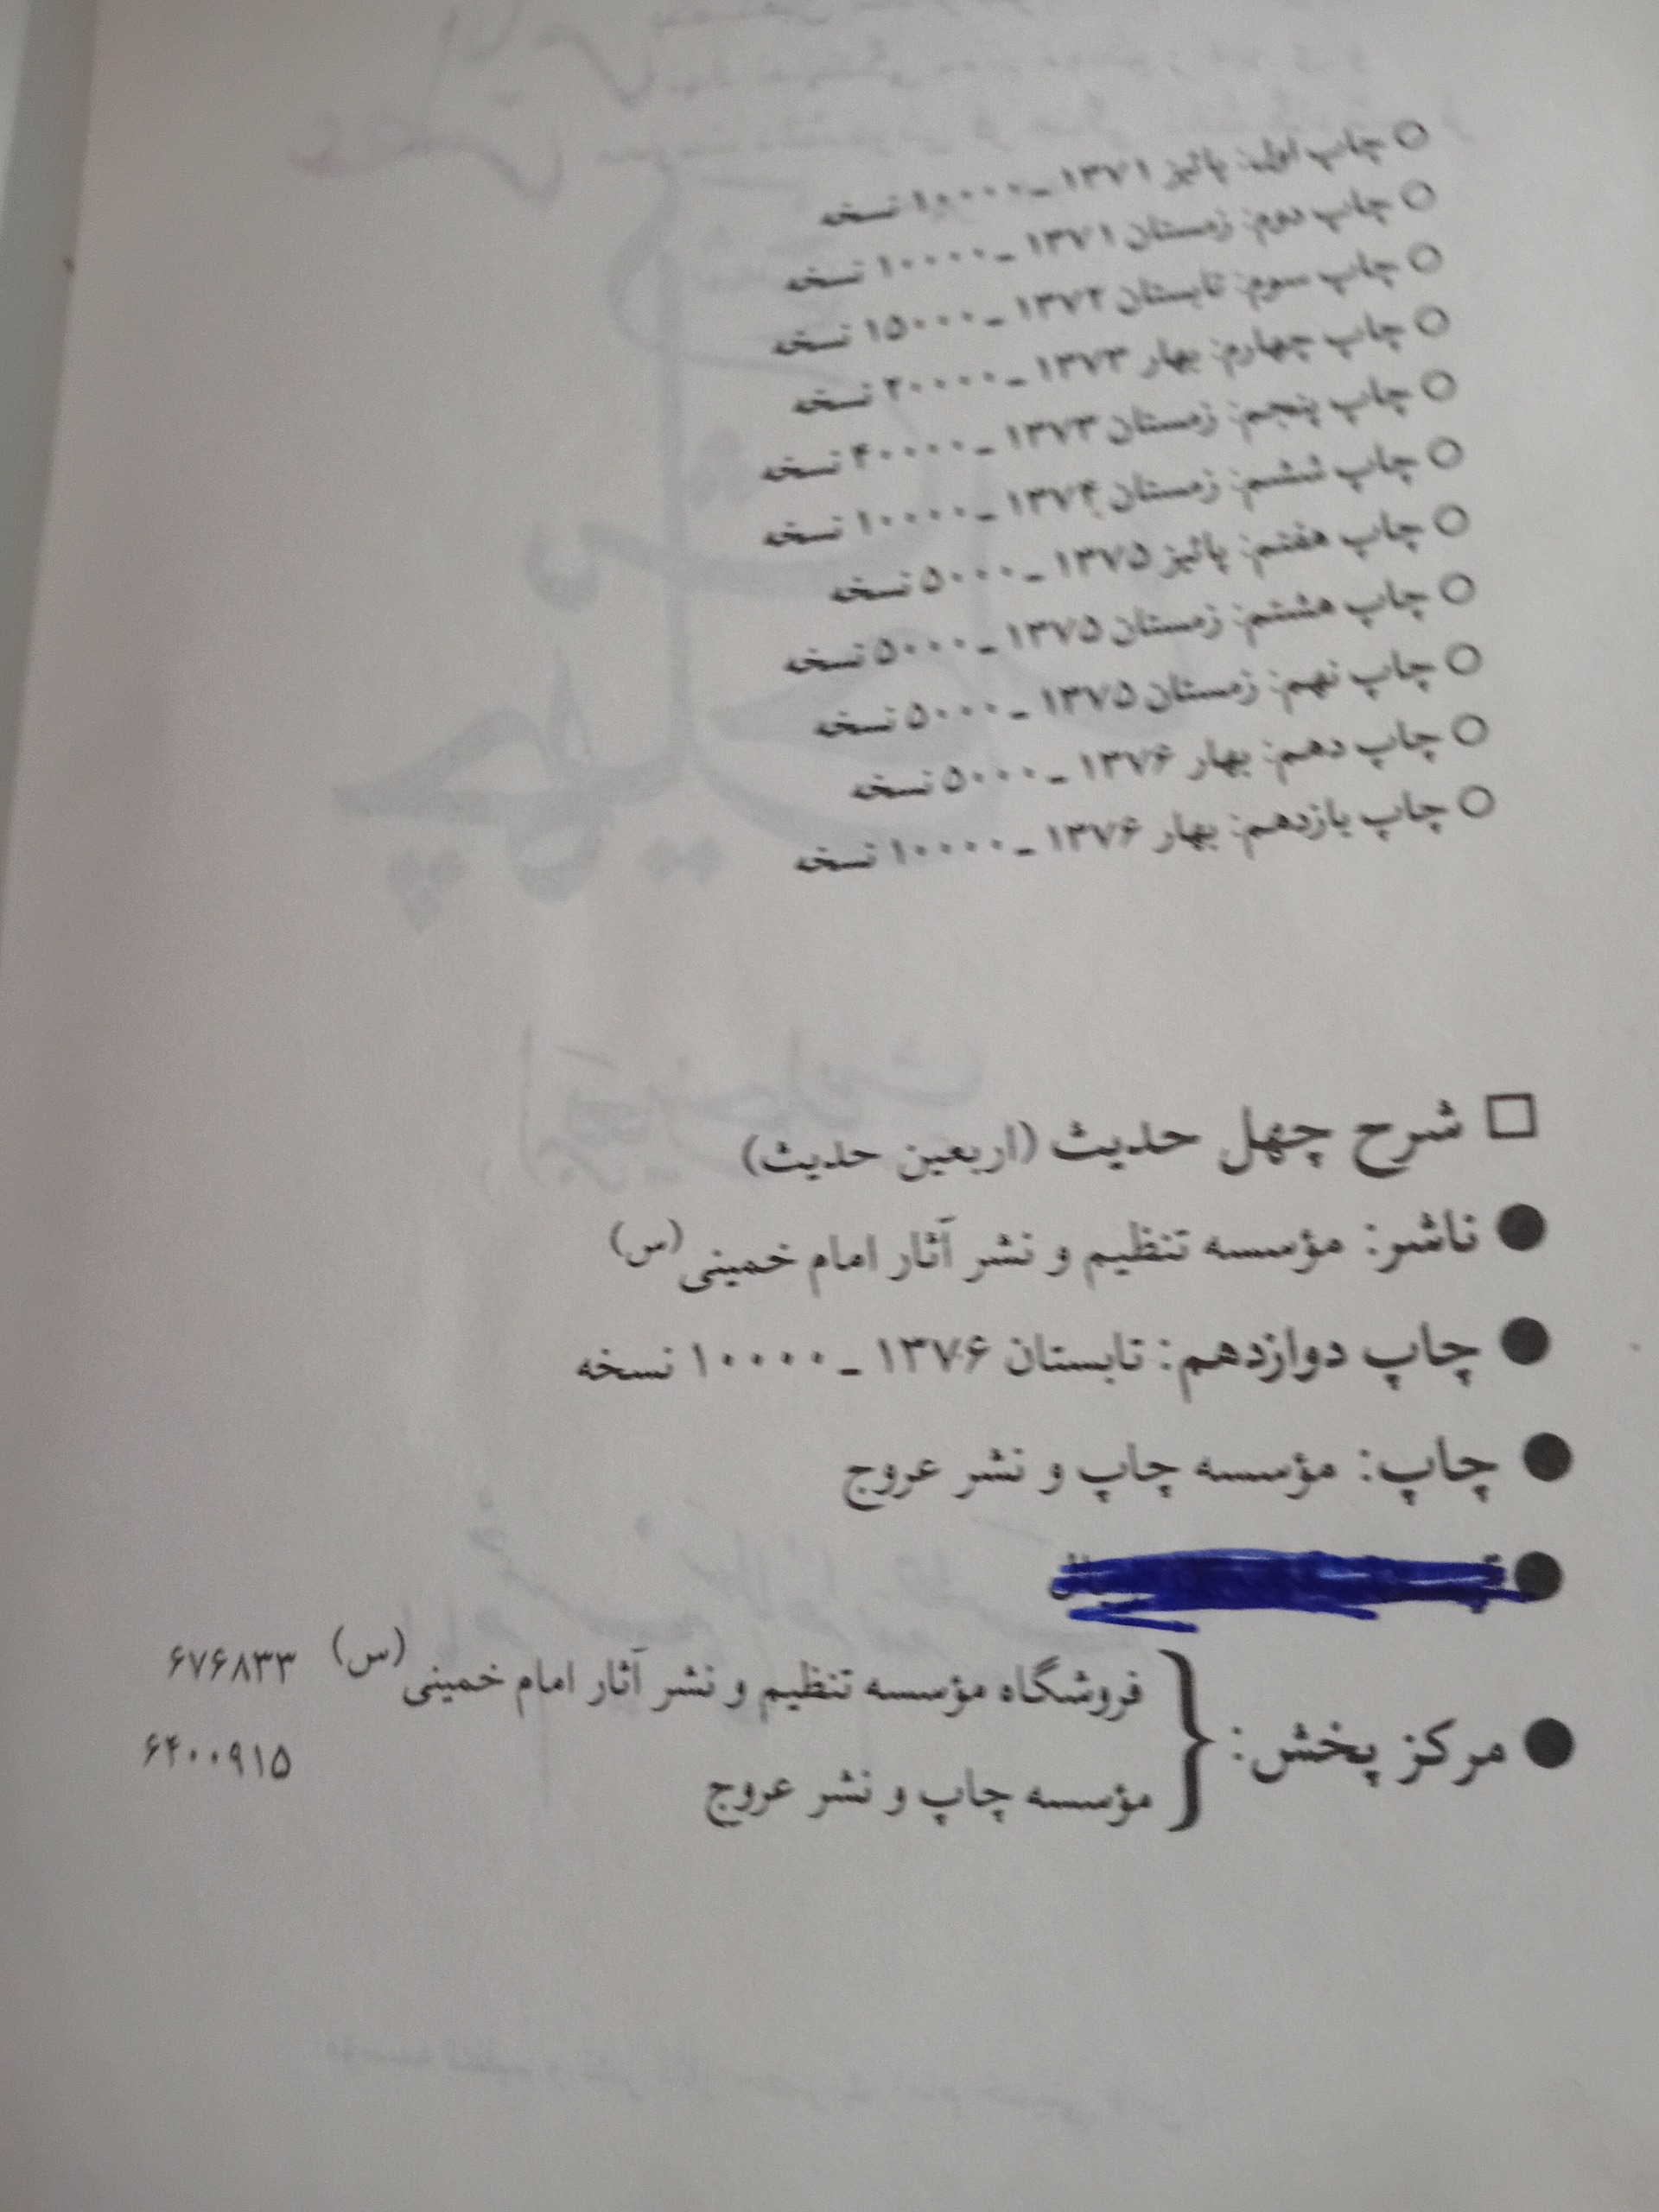 ○ چاپ اول: پائیز ۱۳۷۱ ـ ۱۰۰۰۰ نسخه
○ چاپ دوم: زمستان ۱۳۷۱ ـ ۱۰۰۰۰ نسخه
○ چاپ سوم: تابستان ۱۳۷۲ ـ ۱۵۰۰۰ نسخه
○ چاپ چهارم: بهار ۱۳۷۳ ـ ۲۰۰۰۰ نسخه
○ چاپ پنجم: زمستان ۱۳۷۳ ـ ۴۰۰۰۰ نسخه
○ چاپ ششم: زمستان ۱۳۷۴ ـ ۱۰۰۰۰ نسخه
○ چاپ هفتم: پائیز ۱۳۷۵ ـ ۵۰۰۰ نسخه
○ چاپ هشتم: زمستان ۱۳۷۵ ـ ۵۰۰۰ نسخه
○ چاپ نهم: زمستان ۱۳۷۵ ـ ۵۰۰۰ نسخه
○ چاپ دهم: بهار ۱۳۷۶ ـ ۵۰۰۰ نسخه
○ چاپ یازدهم: بهار ۱۳۷۶ ـ ۱۰۰۰۰ نسخه
□ شرح چهل حدیث (اربعین حدیث)
● ناشر: مؤسسه تنظیم و نشر آثار امام خمینی (س)
● چاپ دوازدهم: تابستان ۱۳۷۶ ـ ۱۰۰۰۰ نسخه
● چاپ: مؤسسه چاپ و نشر عروج
● مرکز پخش:
فروشگاه مؤسسه تنظیم و نشر آثار امام خمینی (س) ۶۷۶۸۳۳
مؤسسه چاپ و نشر عروج ۶۴۰۰۹۱۵